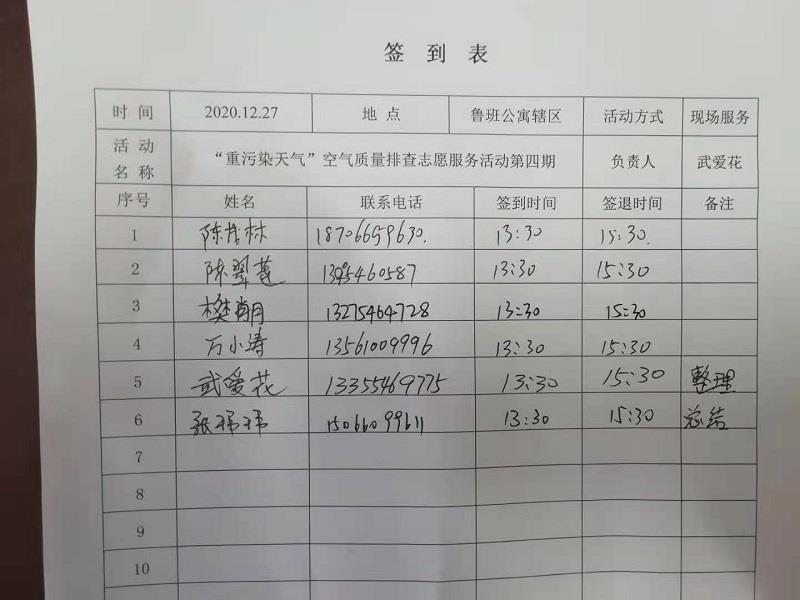 签到表
时间 2020.12.27 地点 鲁班公寓辖区 活动方式 现场服务
活动名称 “重污染天气”空气质量排查志愿服务活动第四期 负责人 武爱花
序号 姓名 联系电话 签到时间 签退时间 备注
1 18706659630. 13:30 15:30.
2 陈翠莲 13:30 15:30
3 樊朋 13275464728 13:30 15:30
4 万小涛 13561009996 13:30 15:30
5 武爱花 13355469775 13:30 15:30 整理
6 张玮玮 15066099611 13:30 15:30 总结
7
8
9
10